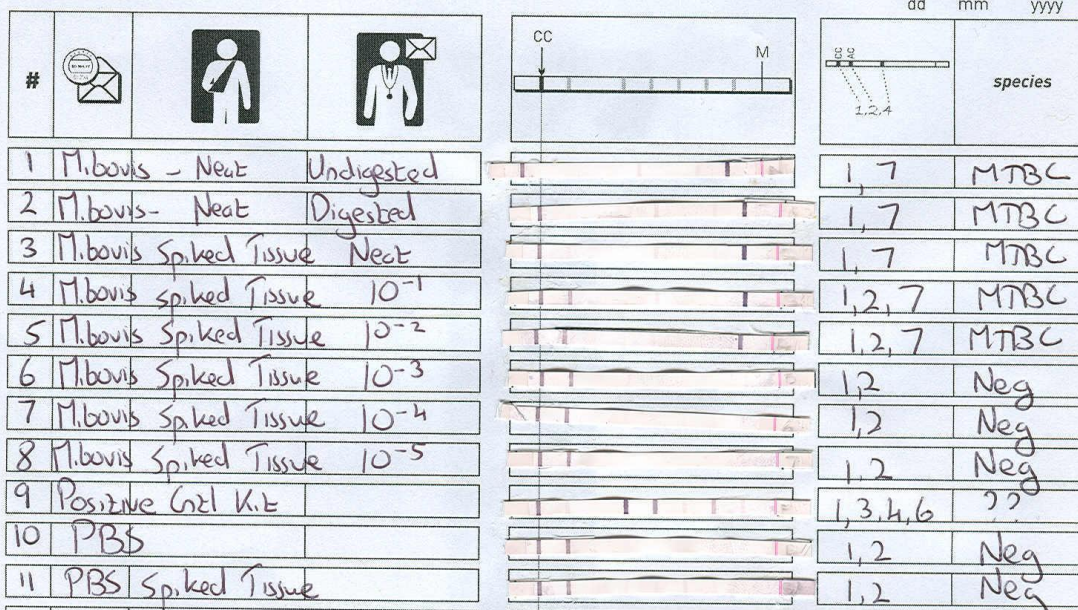 dd mm yyyy
# CC M CC AC 1,2,4 species
1 M.bovis - Neat Undigested 1, 7 MTBC
2 M.bovis- Neat Digested 1, 7 MTBC
3 M.bovis Spiked Tissue Neat 1, 7 MTBC
4 M.bovis Spiked Tissue 10-1 1,2,7 MTBC
5 M.bovis Spiked Tissue 10-2 1,2,7 MTBC
6 M.bovis Spiked Tissue 10-3 1,2 Neg
7 M.bovis Spiked Tissue 10-4 1,2 Neg
8 M.bovis Spiked Tissue 10-5 1,2 Neg
9 Positive Cntl Kit 1,3,4,6 ??
10 PBS 1,2 Neg
11 PBS Spiked Tissue 1,2 Neg